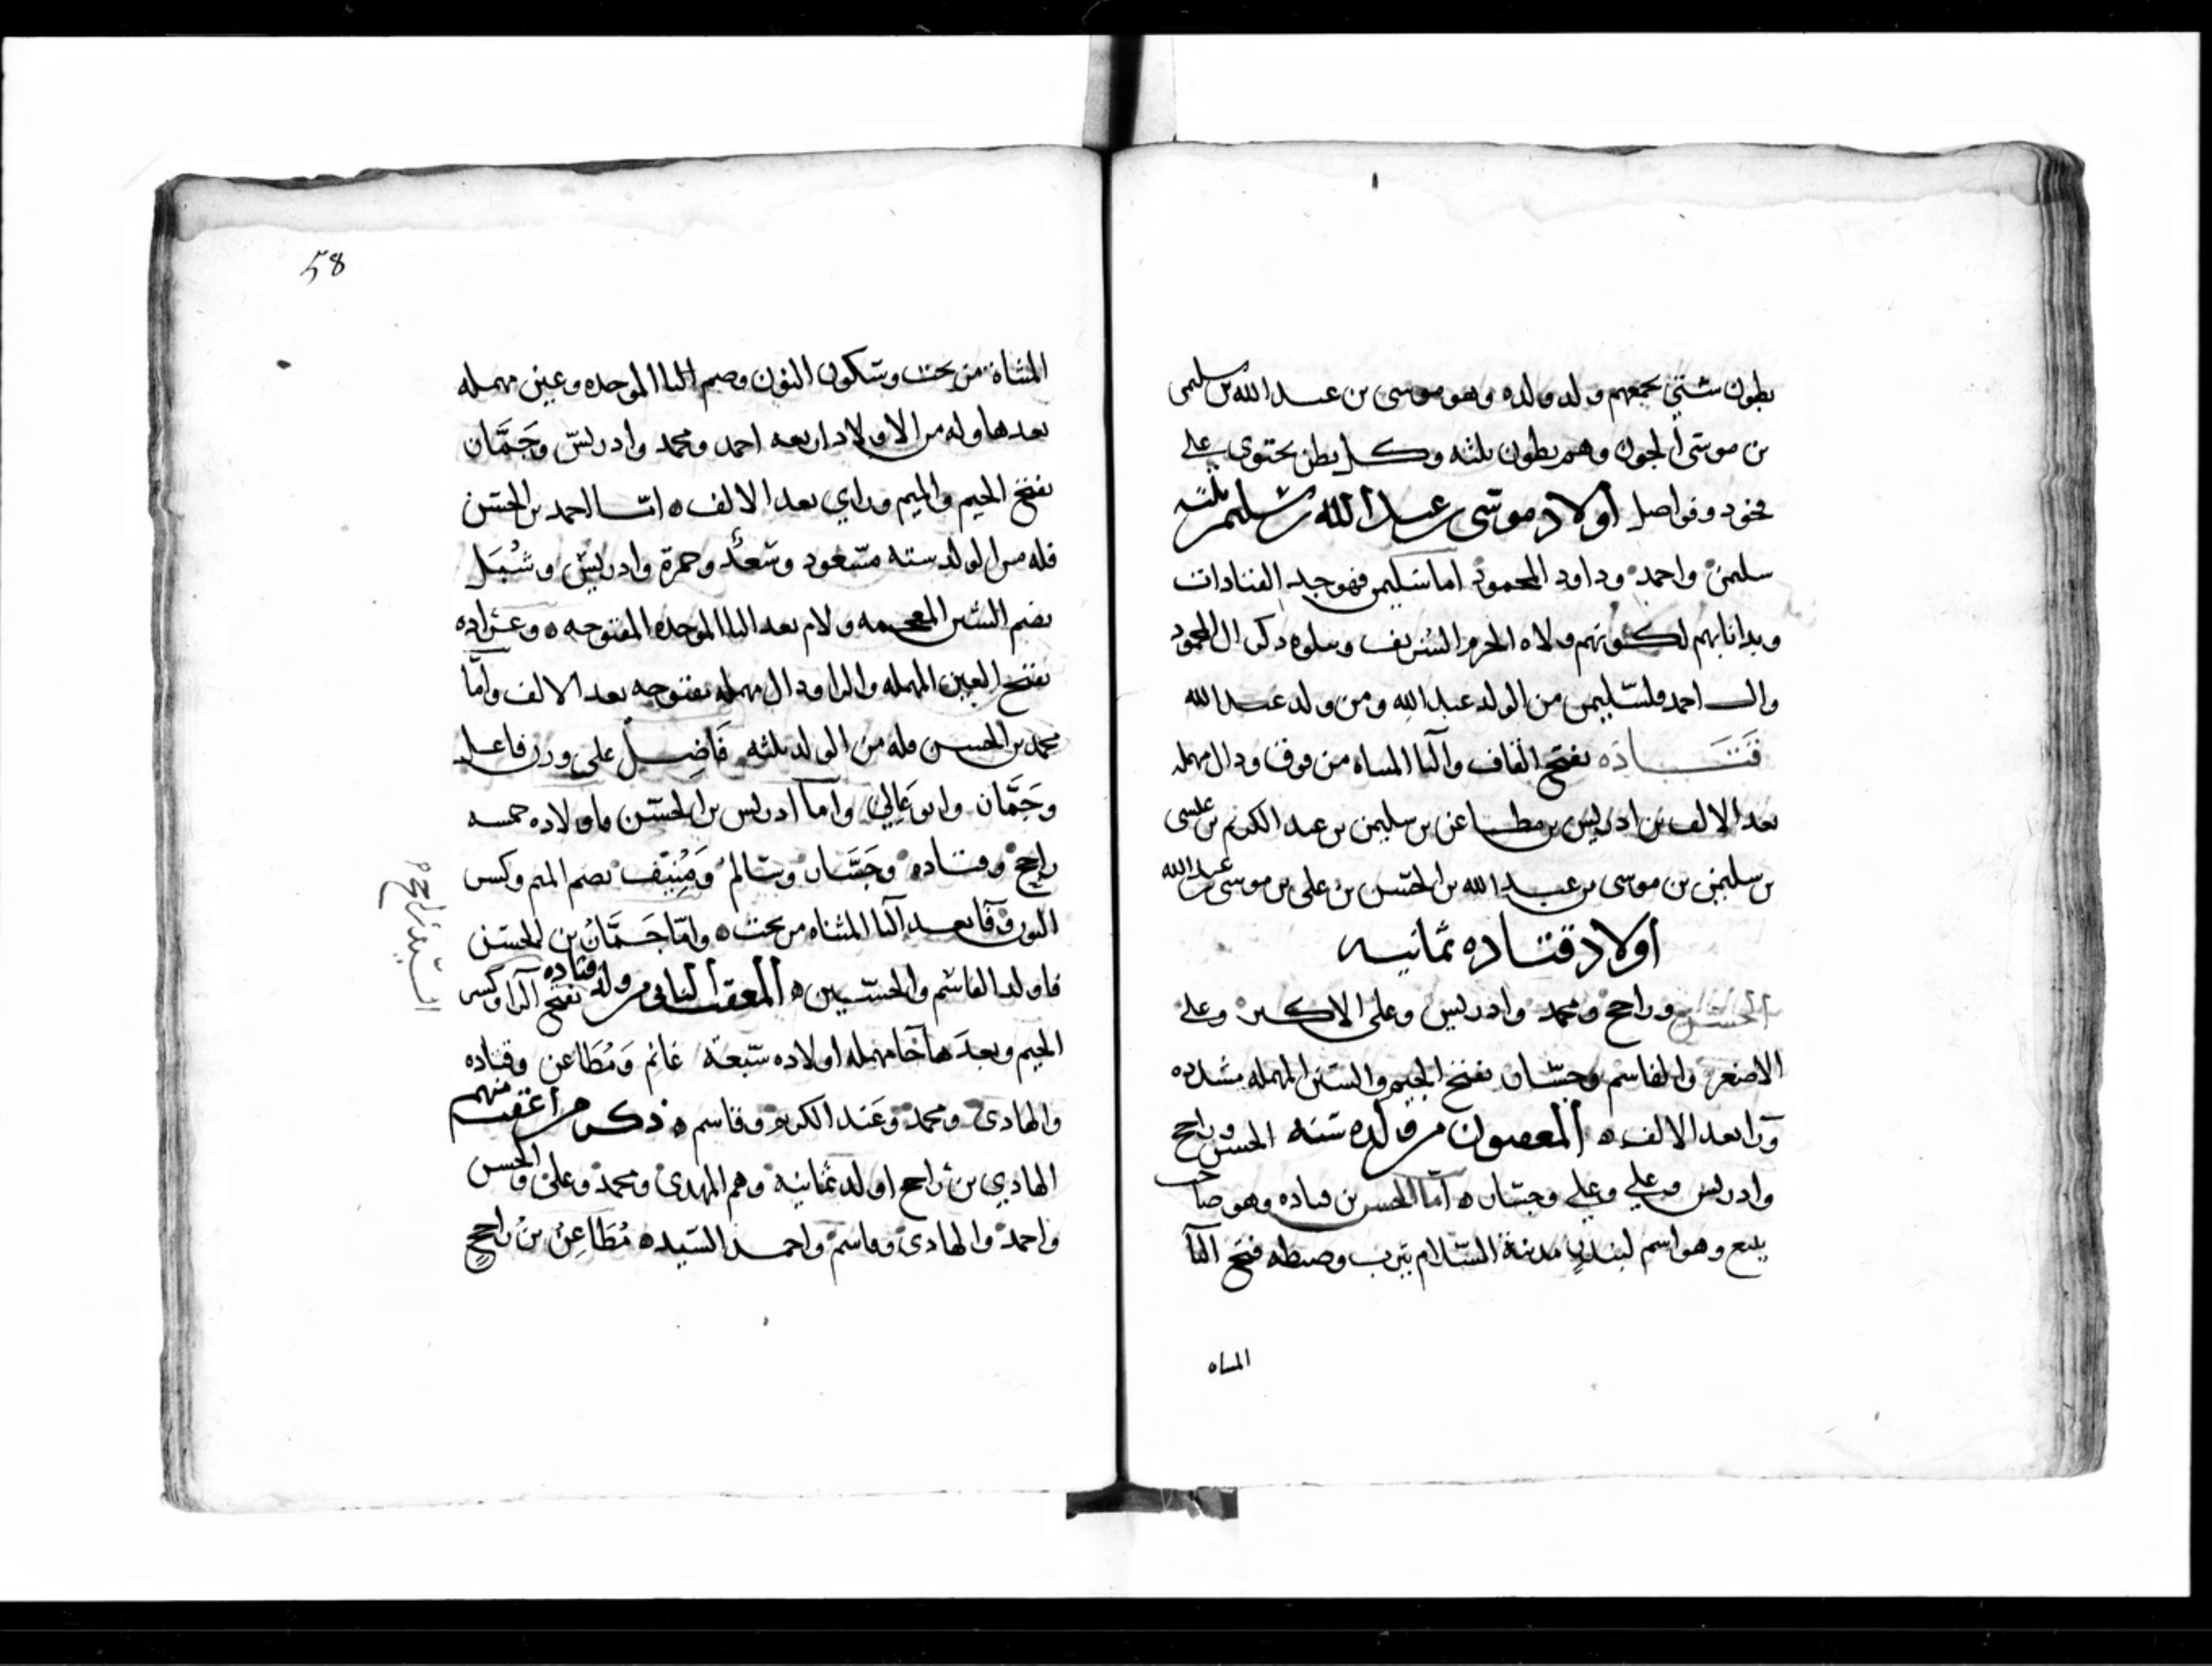 بطون شتى يجمعهم ولد ولده وهو موسى بن عبد الله بن سليمن
بن موسى الجون وهم بطون ثلثه وكل بطن يحتوى على
فخود وفواصل اولاد موسى بن عبد الله بن سليمن ثلثه
سليمن واحمد وداود المحمود اما سليمن فهو جد القتادات
وبدانا بهم لكونهم ولاه الحرم الشريف وتلوه ذكر ال المحمود
وال احمد فلسليمن من الولد عبد الله ومن ولد عبد الله
قتاده بفتح القاف والتا المثناه من فوق ودال مهمله
بعد الالف بن ادريس بن مطاعن بن سليمن بن عبد الكريم بن عيسى
بن سليمن بن موسى بن عبد الله بن الحسن بن على بن موسى بن عبد الله
اولاد قتاده ثمانيه
الحسن وراجح ومحمد وادريس وعلى الاكبر وعلى
الاصغر والقاسم وجسار بفتح الجيم والسين المهمله مشدده
ورا بعد الالف ه المعقبون من ولده سته الحسن وراجح
وادريس وعلي وعلي وجسار ه اما الحسن بن قتاده وهو صاحب
ينبع وهو اسم لبندر مدينة السلام يثرب وضبطه فتح اليا
المثناه
58
المثناة من تحت وسكون النون وضم البا الموحده وعين مهمله
بعدها وله من الاولاد اربعه احمد ومحمد وادريس وجَمَّاز
بفتح الجيم والميم وزاي بعد الالف ه امّا احمد بن الحسن
فله من الولد سته مسعود وسعد وحمزة وادريس وشُبَل
بضم الشين المعجمه ولام بعد البا الموحده المفتوحه ه وعراده
بفتح العين المهمله والرا ودال مهمله مفتوحه بعد الالف وامّا
محمد بن الحسن فله من الولد ثلثه فَاضِل على وزن فاعل
وجَمَّاز وابو عَالِي وامّا ادريس بن الحسن فاولاده خمسه
راجح وقتاده وجَسَّار وسالم ومُنِيف بضم الميم وكسر
النون وفا بعد اليا المثناه من تحت ه وامّا جَمَّاز بن الحسن
فاولد القاسم والحسين ه المعقب الثانى من ولد قتاده بفتح الرا وكسر
الجيم وبعدها حا مهمله اولاده سبعة غانم ومُطَاعن وقتاده
والهادى ومحمد وعبد الكريم وقاسم ه ذكر من اعقب منهم
الهادي بن راجح اولد ثمانيه وهم المهدى ومحمد وعلى والحسن
واحمد والهادى وقاسم واحمد السيد ه مُطَاعِن بن راجح